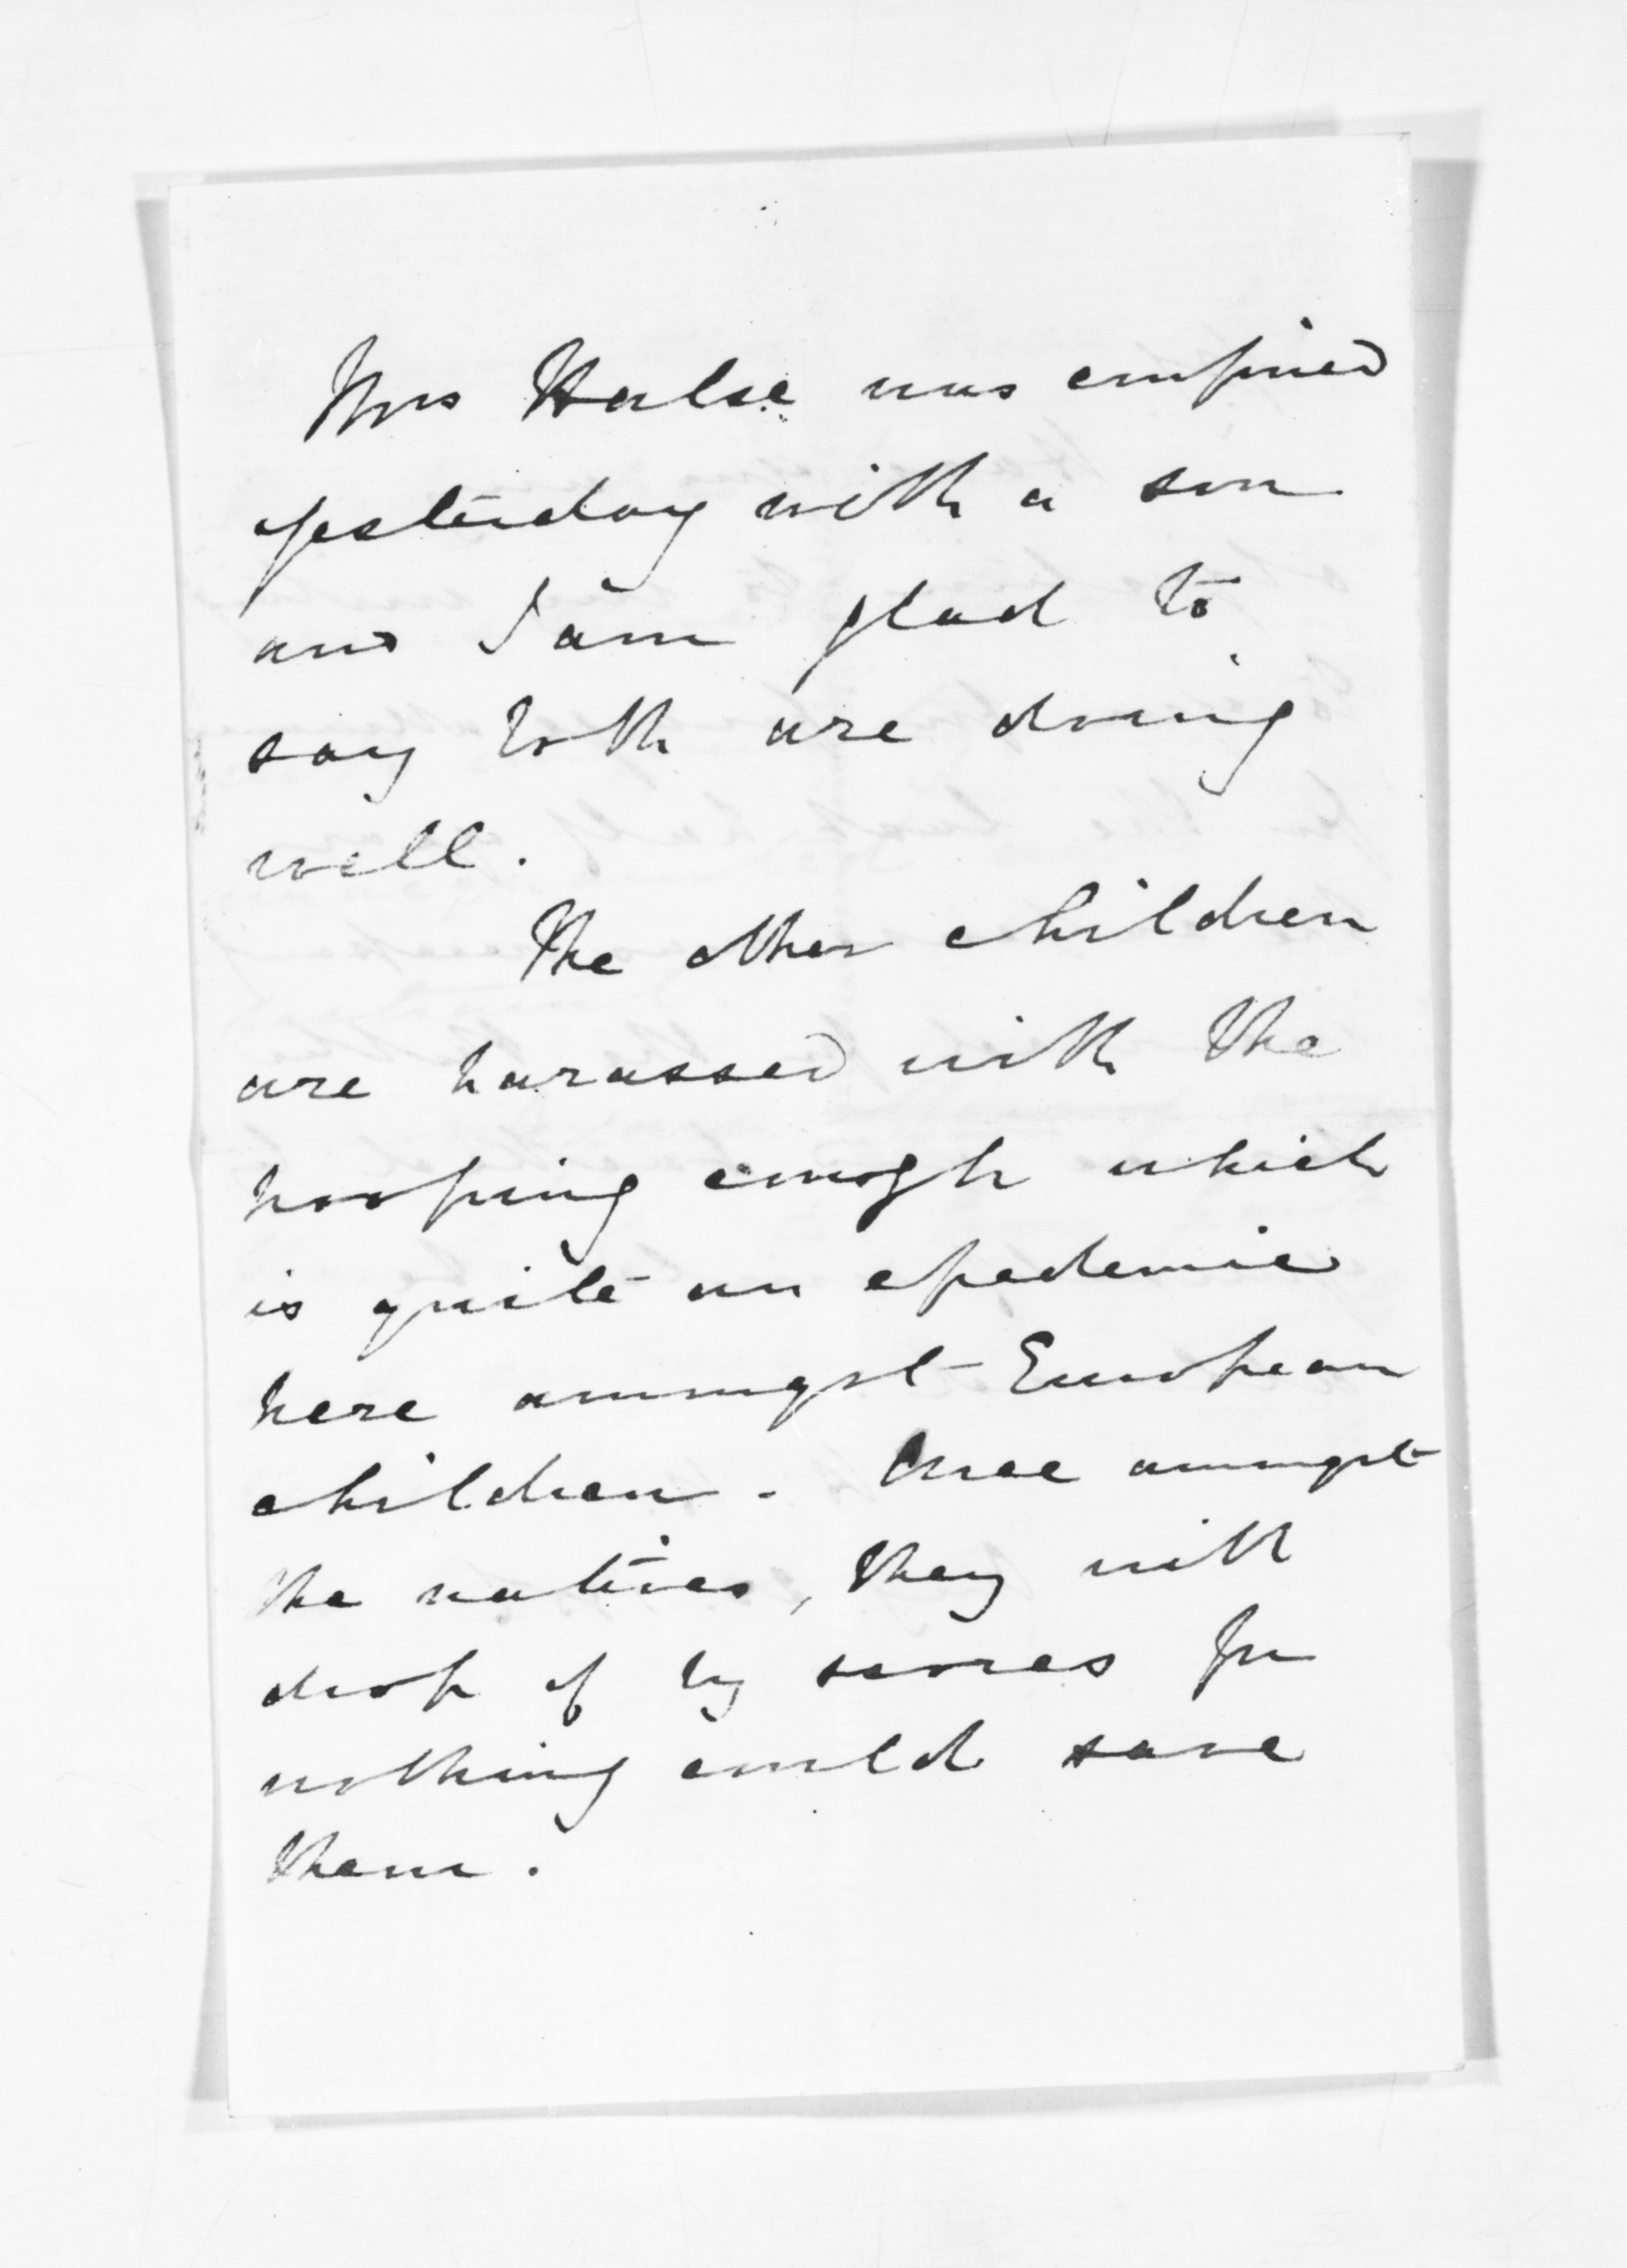 Mrs Halse was confined
yesterday with a son
and I am glad to
say both are doing
well.
The other children
are harassed with the
hooping cough which
is quite an epedemic
here amongst European
children. Once amongst
the natives, they will
drop of by scores for
nothing could save
them.